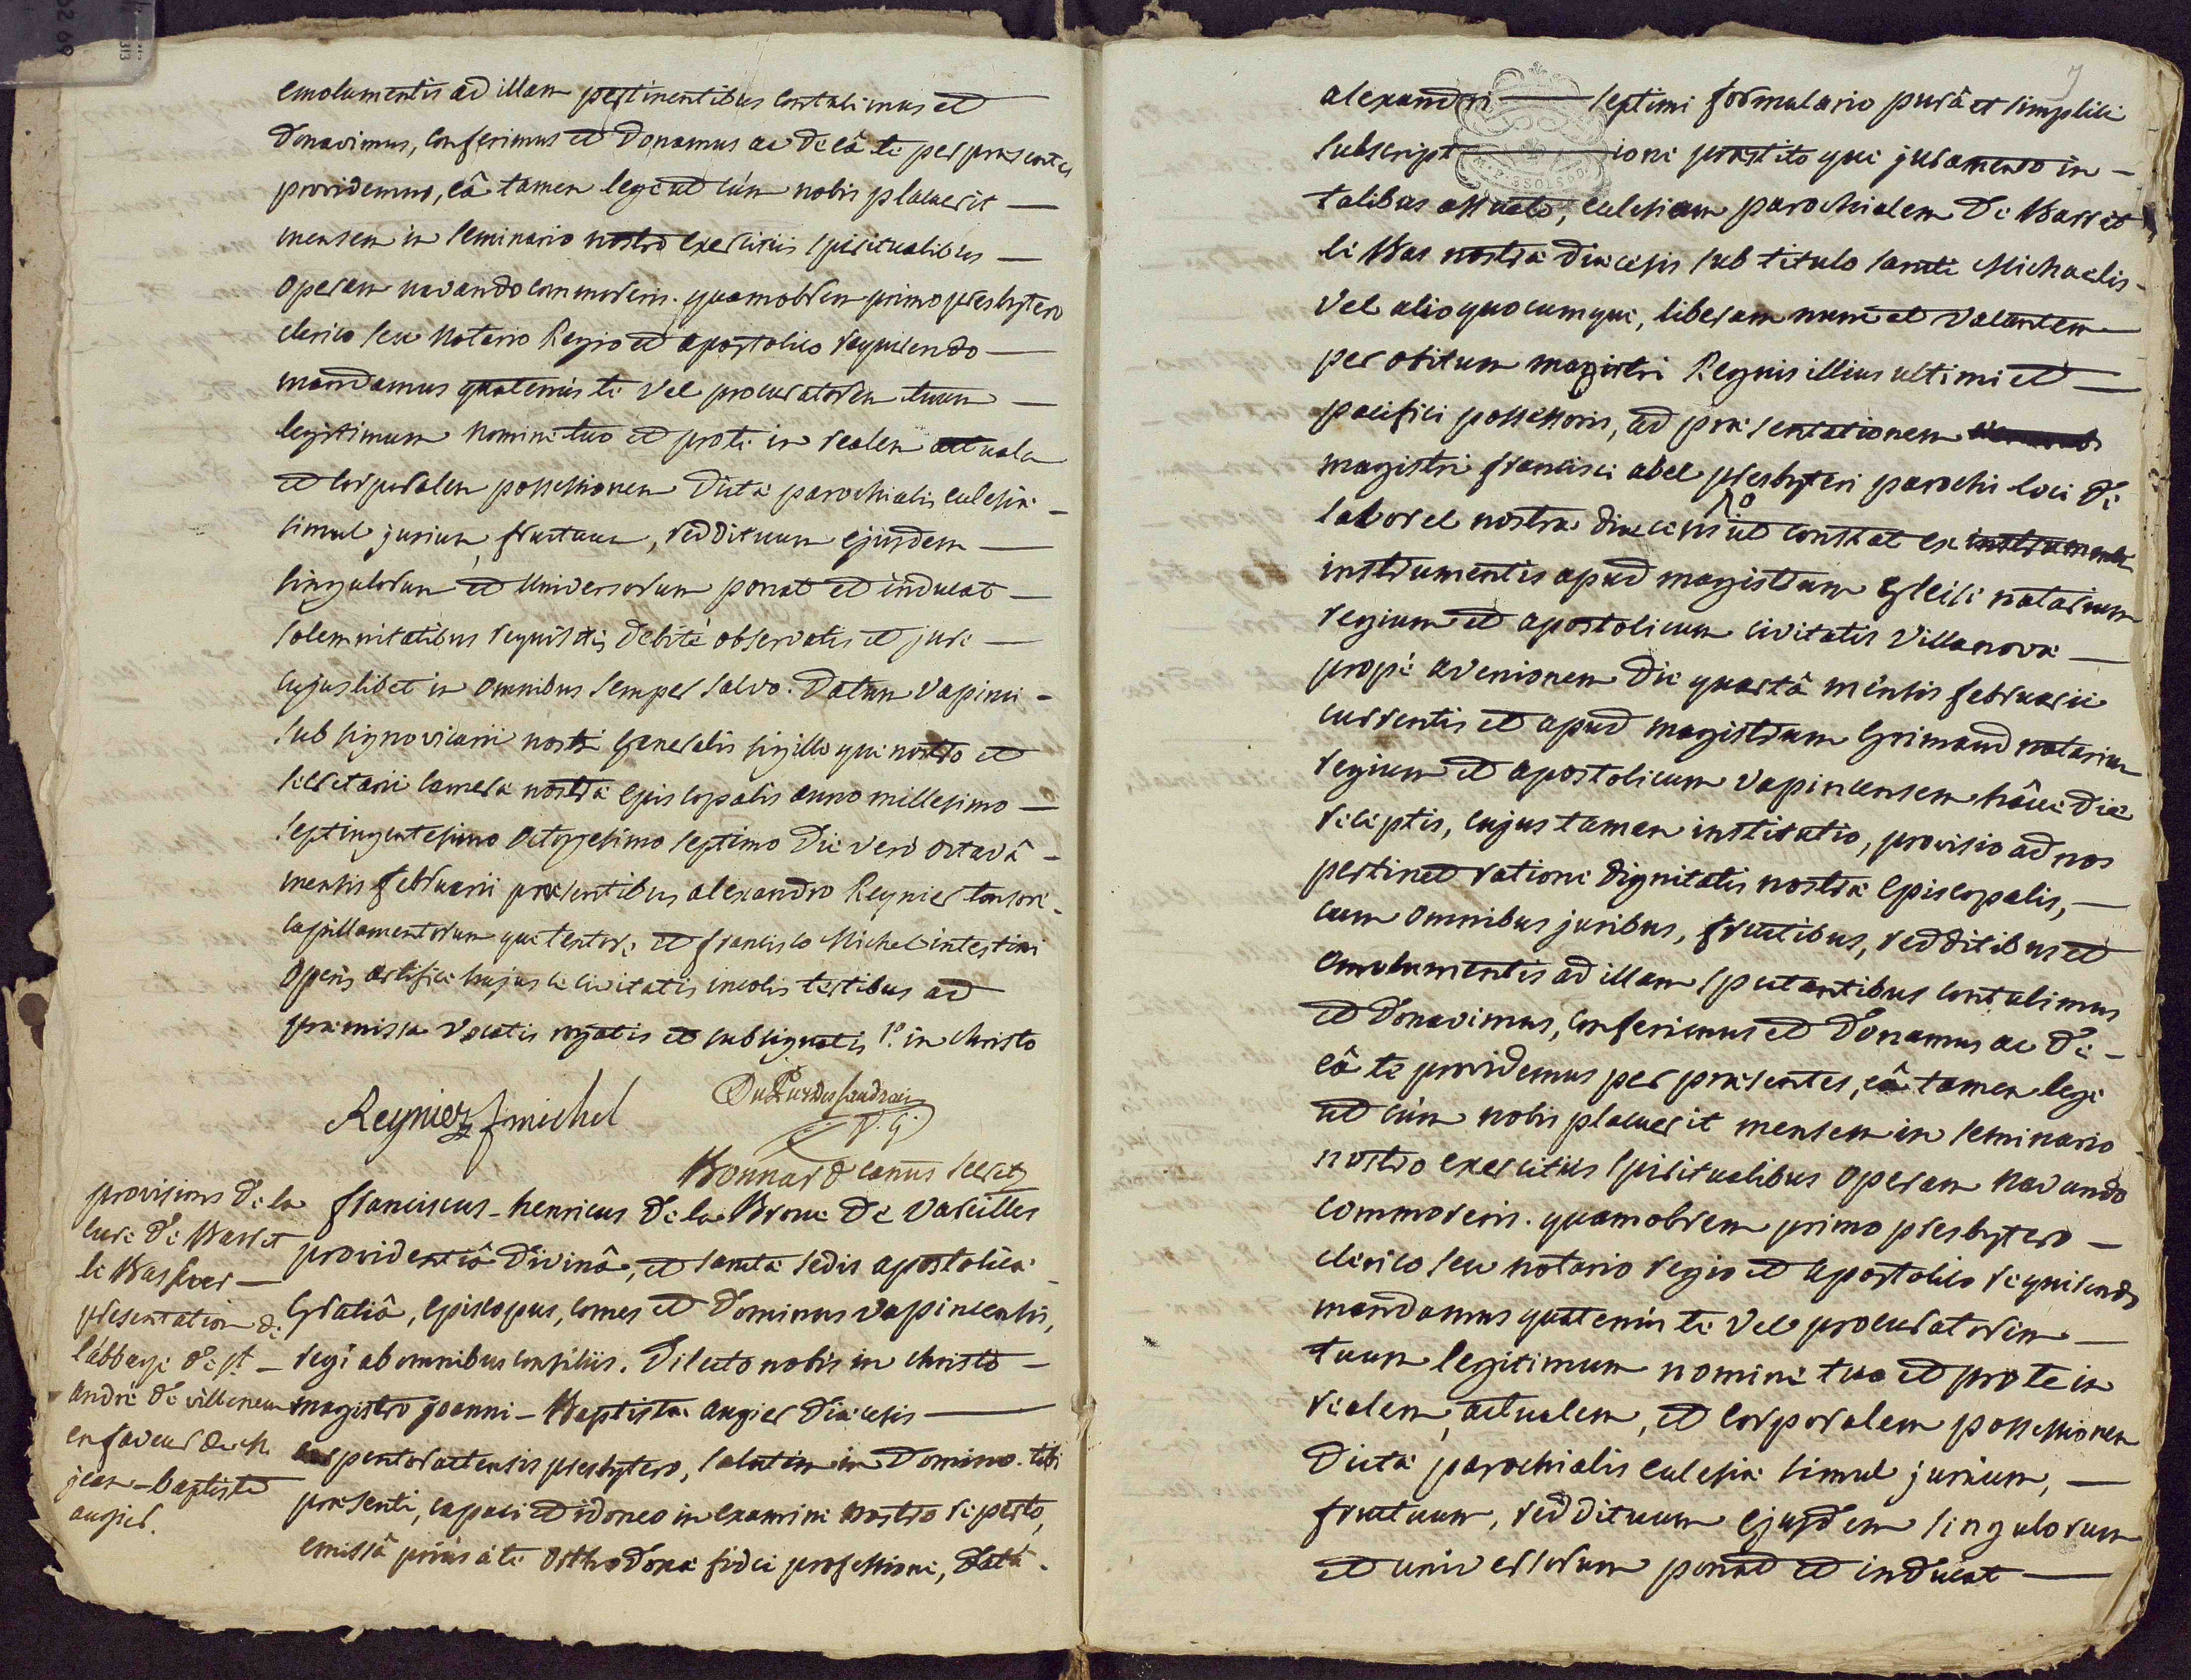 emolumentis ad illam pertinentibus contulimus et
donavimus, conferimus et donamus ac de eâ te per præsentes
providemus, eâ tamen lege ut cùm nobis placuerit
mensem in seminario nostro exercitiis spiritualibus
operam navando commoreris. quamobrem primo presbytero
clerico seu Notario Regio et apostolico requirendo
mandamus quatenùs te vel procuratorem tuum
legitimum nomine tuo et pro te in realem actualem
et corporalem possessionem dictæ parochialis ecclesiæ
simul jurium, fructuum, reddituum ejusdem
singulorum et universorum ponat et inducat
solemnitatibus requisitis debitè observatis et jure
cujuslibet in omnibus semper salvo. Datum vapinci
sub signo vicarii nostri generalis sigilloque nostro et
secretarii cameræ nostræ episcopalis anno millesimo
septingentesimo octogesimo septimo die verò octavâ
mensis februarii præsentibus alexandro Reynier tonsore
capillamentorum que textore et francisco Michel intestini
operis artifice hujusce civitatis incolis testibus ad
præmissa vocatis rogatis et subsignatis P. in christo
Reynier f michel
V. G.
Bonnard canus secret
provisions de la
cure de Barret
le Bas sur
presentation de
l'abbaye de st
andré de villeneuve
en faveur de M.
jean-baptiste
augier.
franciscus-henricus de la Broue de Vareilles
providentiâ divinâ, et sanctæ sedis apostolicæ
gratiâ, episcopus, comes et dominus vapincensis,
regi ab omnibus consiliis. Dilecto nobis in christo
magistro joanni-Baptistæ augier diæcesis
carpentoractensis presbytero, salutem in domino. tibi
præsenti, capaci et idoneo in examine nostro reperto,
emissâ priùs à te orthodoxæ fidei professione, datâ
7
alexandri septimi formulario purâ et simplici
subscriptione præstito que juramento in
talibus assueto, ecclesiam parochialem de Barret
le Bas nostræ diæcesis sub titulo sancti Michaelis
vel alio quocumque, liberam nunc et vacantem
per obitum magistri Reynis illius ultimi et
pacifici possessoris, ad præsentationem
magistri francisci abel presbyteri parochi loci de
laborel nostræ diæcesis ut constat ex instrumentis
instrumentis apud magistrum Gleise notarium
regium et apostolicum civitatis villanovæ
propè avenionem die quartâ mensis februarii
currentis et apud magistrum Grimaud notarium
regium et apostolicum vapincensem hâcce die
receptis, cujus tamen institutio, provisio ad nos
pertinet ratione dignitatis nostræ episcopalis,
cum omnibus juribus, fructibus, redditibus et
emolumentis ad illam spectantibus contulimus
et donavimus, conferimus et donamus ac de
eâ te providemus per præsentes, eâ tamen lege
ut cùm nobis placuerit mensem in seminario
nostro exercitiis spiritualibus operam navando
commoreris. quamobrem primo presbytero
clerico seu notario regio et apostolico requirendo
mandamus quatenùs te vel procuratorem
tuum legitimum nomine tuo et pro te in
realem, actualem, et corporalem possessionem
dictæ parochialis ecclesiæ simul jurium,
fructuum, reddituum ejusdem singulorum
et universorum ponat et inducat